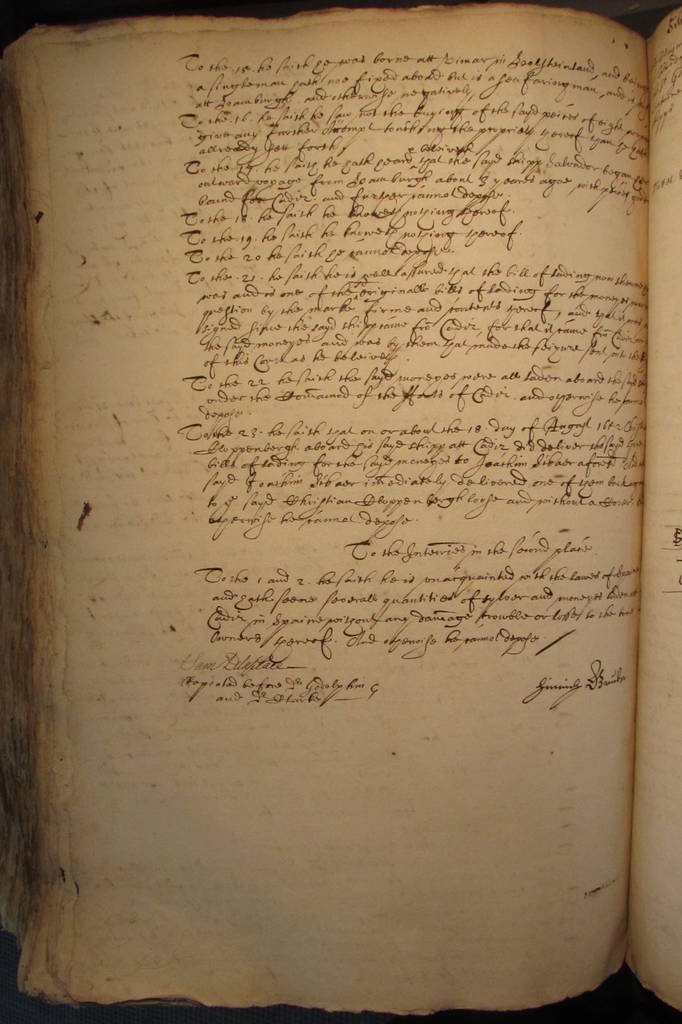 To the 15. he saith he was borne att Wimar in Holsteinland, and being
a singleman hath noe fixed aboad but is a seafaring man, and
att Hamburgh, and otherwise negatively,
To the 16. he saith he saw not the buying of the sayd peices of eight,
give any further accompt touching the propriety thereof than he hath
allready sett forth,
To the 17. he saith he hath heard & beleiveth that the sayd shipp Salvador began her
outward voyage from Hamburgh about 3 yeares agoe, with
bound for Cadiz. and further cannot depose.
To the 18 he saith he knowes nothing thereof.
To the 19. he saith he knoweth nothing thereof.
To the 20 he saith he cannot depose.
To the .21. he saith he is well assured that the bill of lading now
was and is one of the originall bills of lading for the moneyes
question by the marke firme and contents thereof, and that it was
signed since the said shipp came from Cadiz, for that it came from Cadiz
the sayd moneyes and was by them that made the seizure sent into the
of this Court as he beleiveth.
To the 22 he saith the sayd moneyes were all laden aboard the sayd
under the Command of the fforts of Cadiz. and otherwise he cannot
depose.
To the 23. he saith that on or about the 18. day of August 1652
Cloppenbergh aboard his sayd shipp att Cadiz did deliver the sayd
bills of lading for the sayd moneyes to Joachim Sibaer aforesd
sayd Joachim Sibaer immediately delivered one of them back
to ye sayd Christian Cloppenbergh loose and without a Cover,
otherwise he cannot depose.
To the Interries in the second place
To the 1 and 2. he saith he is unacquainted with the lawes of
and hath seene severall quantities of sylver and moneyes laden att
Cadiz in Spaine without any damage trouble or losse to the
Owners thereof. And otherwise he cannot depose.
Repeated before Dr Godolphin
and Dr Clarke
Hinrich